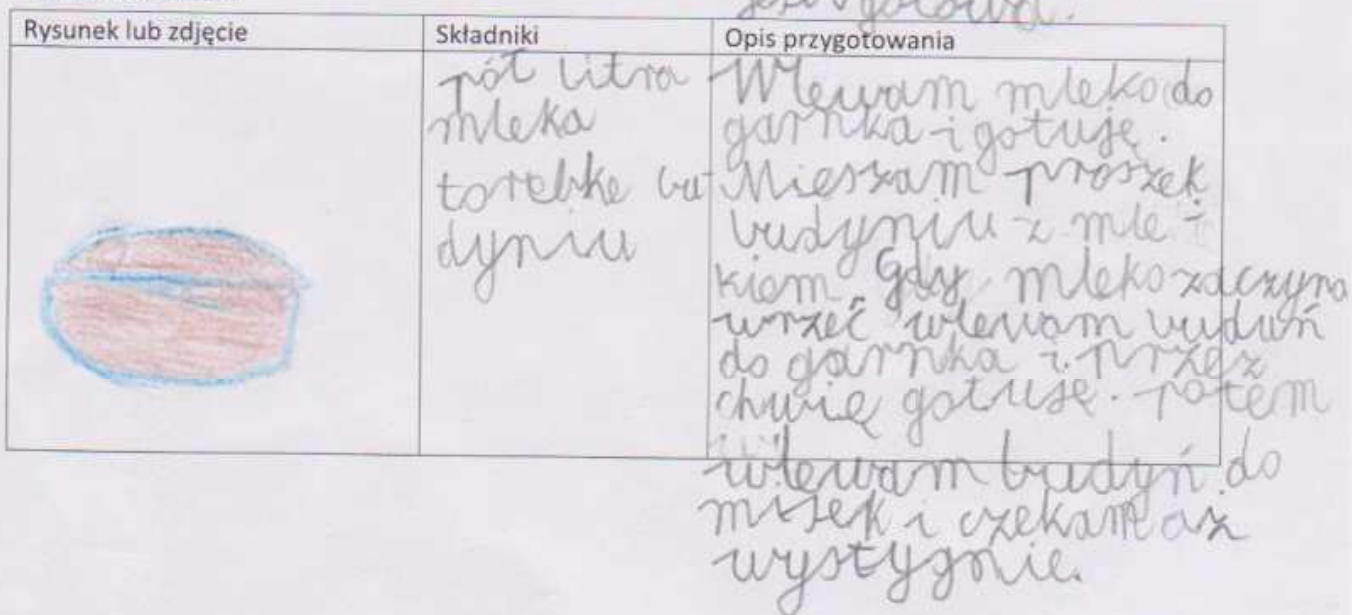 jest gotowa.
Rysunek lub zdjęcie
Składniki
Opis przygotowania
pół litra
mleka
torebke bu
dyniu
Wlewam mleko do
garnka i gotuję.
Mieszam proszek
budyniu z mle -
kiem. Gdy mleko zaczyna
wrzeć wlewam buduń
do garnka i przez
chwię gotuję. potem
wlewam budyń do
misek i czekam aż
wystygnie.